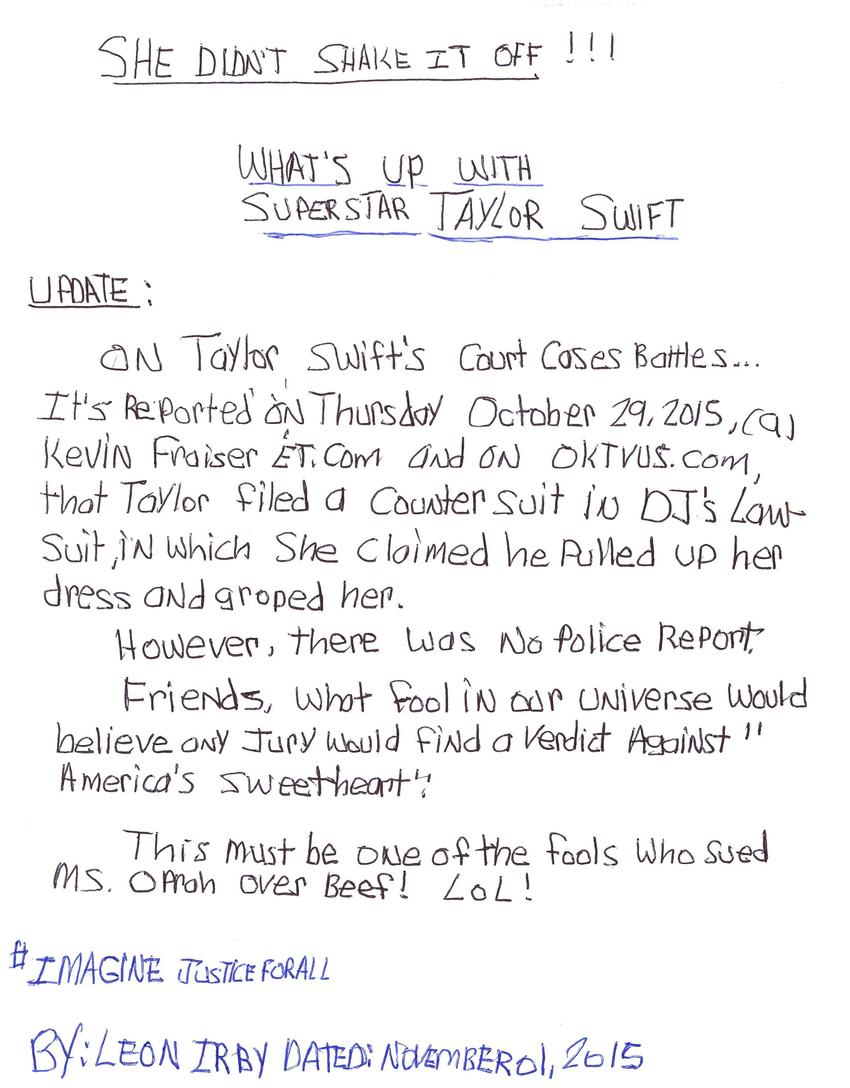 SHE DIDN'T SHAKE IT OFF !!!
WHAT'S UP WITH
SUPERSTAR TAYLOR SWIFT
UPDATE :
ON Taylor Swift's Court Cases Battles...
It's Reported ON Thursday October 29, 2015, (a)
Kevin Fraiser ET.Com and ON OKTVUS.com,
that Taylor filed a Counter Suit in DJ's Law
Suit, in which She Claimed he Pulled up her
dress and groped her.
However, there was No Police Report.
Friends, what fool in our universe would
believe any Jury would find a Verdict Against "
America's Sweetheart".
This must be one of the fools who sued
Ms. Oprah over Beef! LoL!
#IMAGINE JUSTICE FOR ALL
BY: LEON IRBY DATED: NOVEMBER 01, 2015